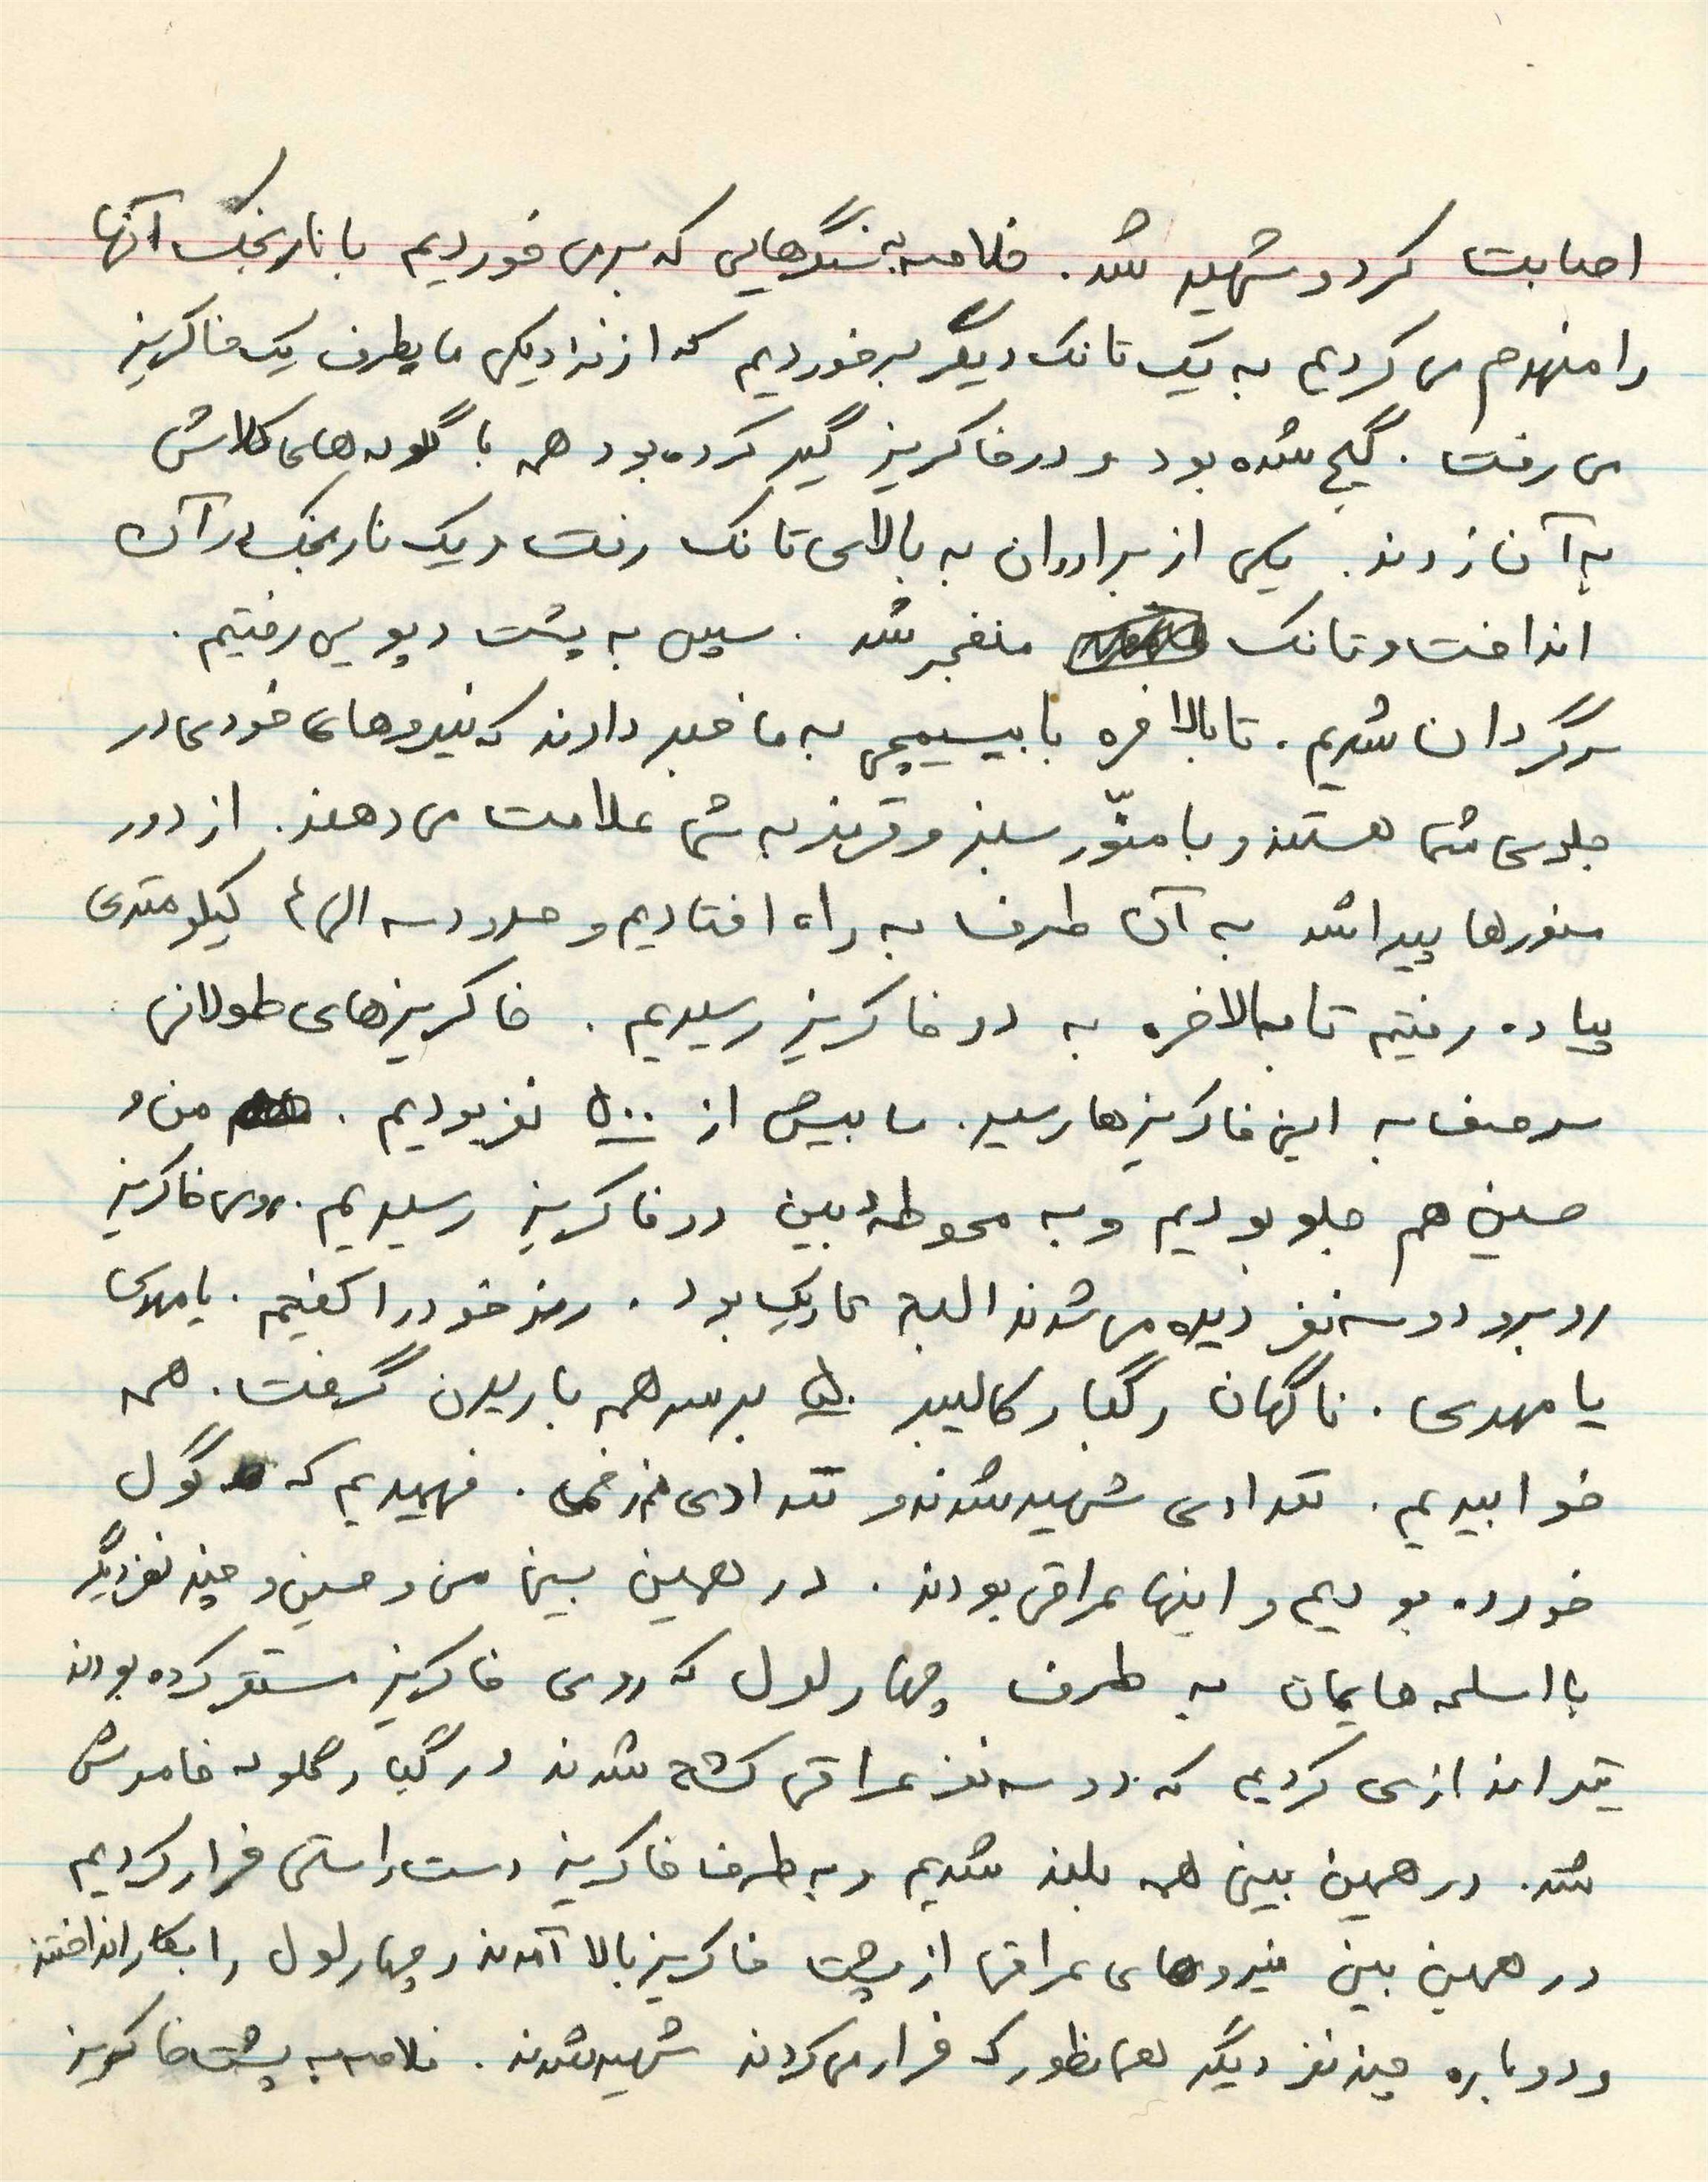 اصابت کرد و شهید شد. خلاصه به سنگرهایی که برمی خوردیم با نارنجک آنها
را منهدم می کردیم به یک تانک دیگر برخوردیم که از نزدیکی ما بطرف یک خاکریز
می رفت. گیج شده بود و در خاکریز گیر کرده بود همه با گلوله های کلاش
به آن زدند. یکی از برادران به بالای تانک رفت و یک نارنجک در آن
انداخت و تانک منفجر شد. سپس به پشت دپویی رفتیم.
سرگردان شدیم. تا بالاخره با بیسیمچی به ما خبر دادند که نیروهای خودی در
جلوی شما هستند و با منوّر سبز و قرمز به شما علامت می دهند. از دور
منورها پیدا شد به آن طرف به راه افتادیم و حدود سه الی ۴ کیلومتری
پیاده رفتیم تا بالاخره به دو خاکریز رسیدیم. خاکریزهای طولانی
سر صف به این خاکریزها رسید. ما بیش از ۵۰۰ نفر بودیم. من و
حسین هم جلو بودیم و به محوطهٔ بین دو خاکریز رسیدیم. روی خاکریز
روبرو دو سه نفر دیده می شدند البته تاریک بود. رمز خود را گفتیم. یا مهدی
یا مهدی. ناگهان رگبار کالیبر ۵۰ بر سر همه باریدن گرفت. همه
خوابیدیم. تعدادی شهید شدند و تعدادی زخمی. فهمیدیم که گول
خورده بودیم و اینها عراقی بودند. در همین بین من و حسین و چند نفر دیگر
با اسلحه هایمان به طرف چهار لول که روی خاکریز مستقر کرده بودند
تیراندازی کردیم که دو سه نفر عراقی کشته شدند و رگبار گلوله خاموش
شد. در همین بین همه بلند شدیم و به طرف خاکریز دست راستی فرار کردیم
در همین بین نیروهای عراقی از پشت خاکریز بالا آمدند و چهار لول را بکار انداختند
و دوباره چند نفر دیگر همانطور که فرار می کردند شهید شدند. خلاصه به پشت خاکریز